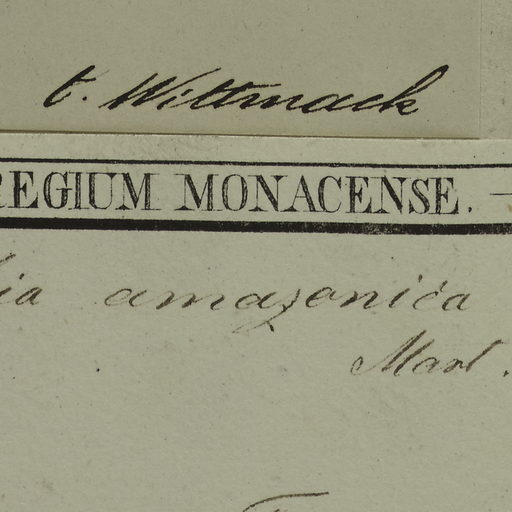 t. Wittmack
REGIUM MONACENSE. —
ia amazonica
Mart.